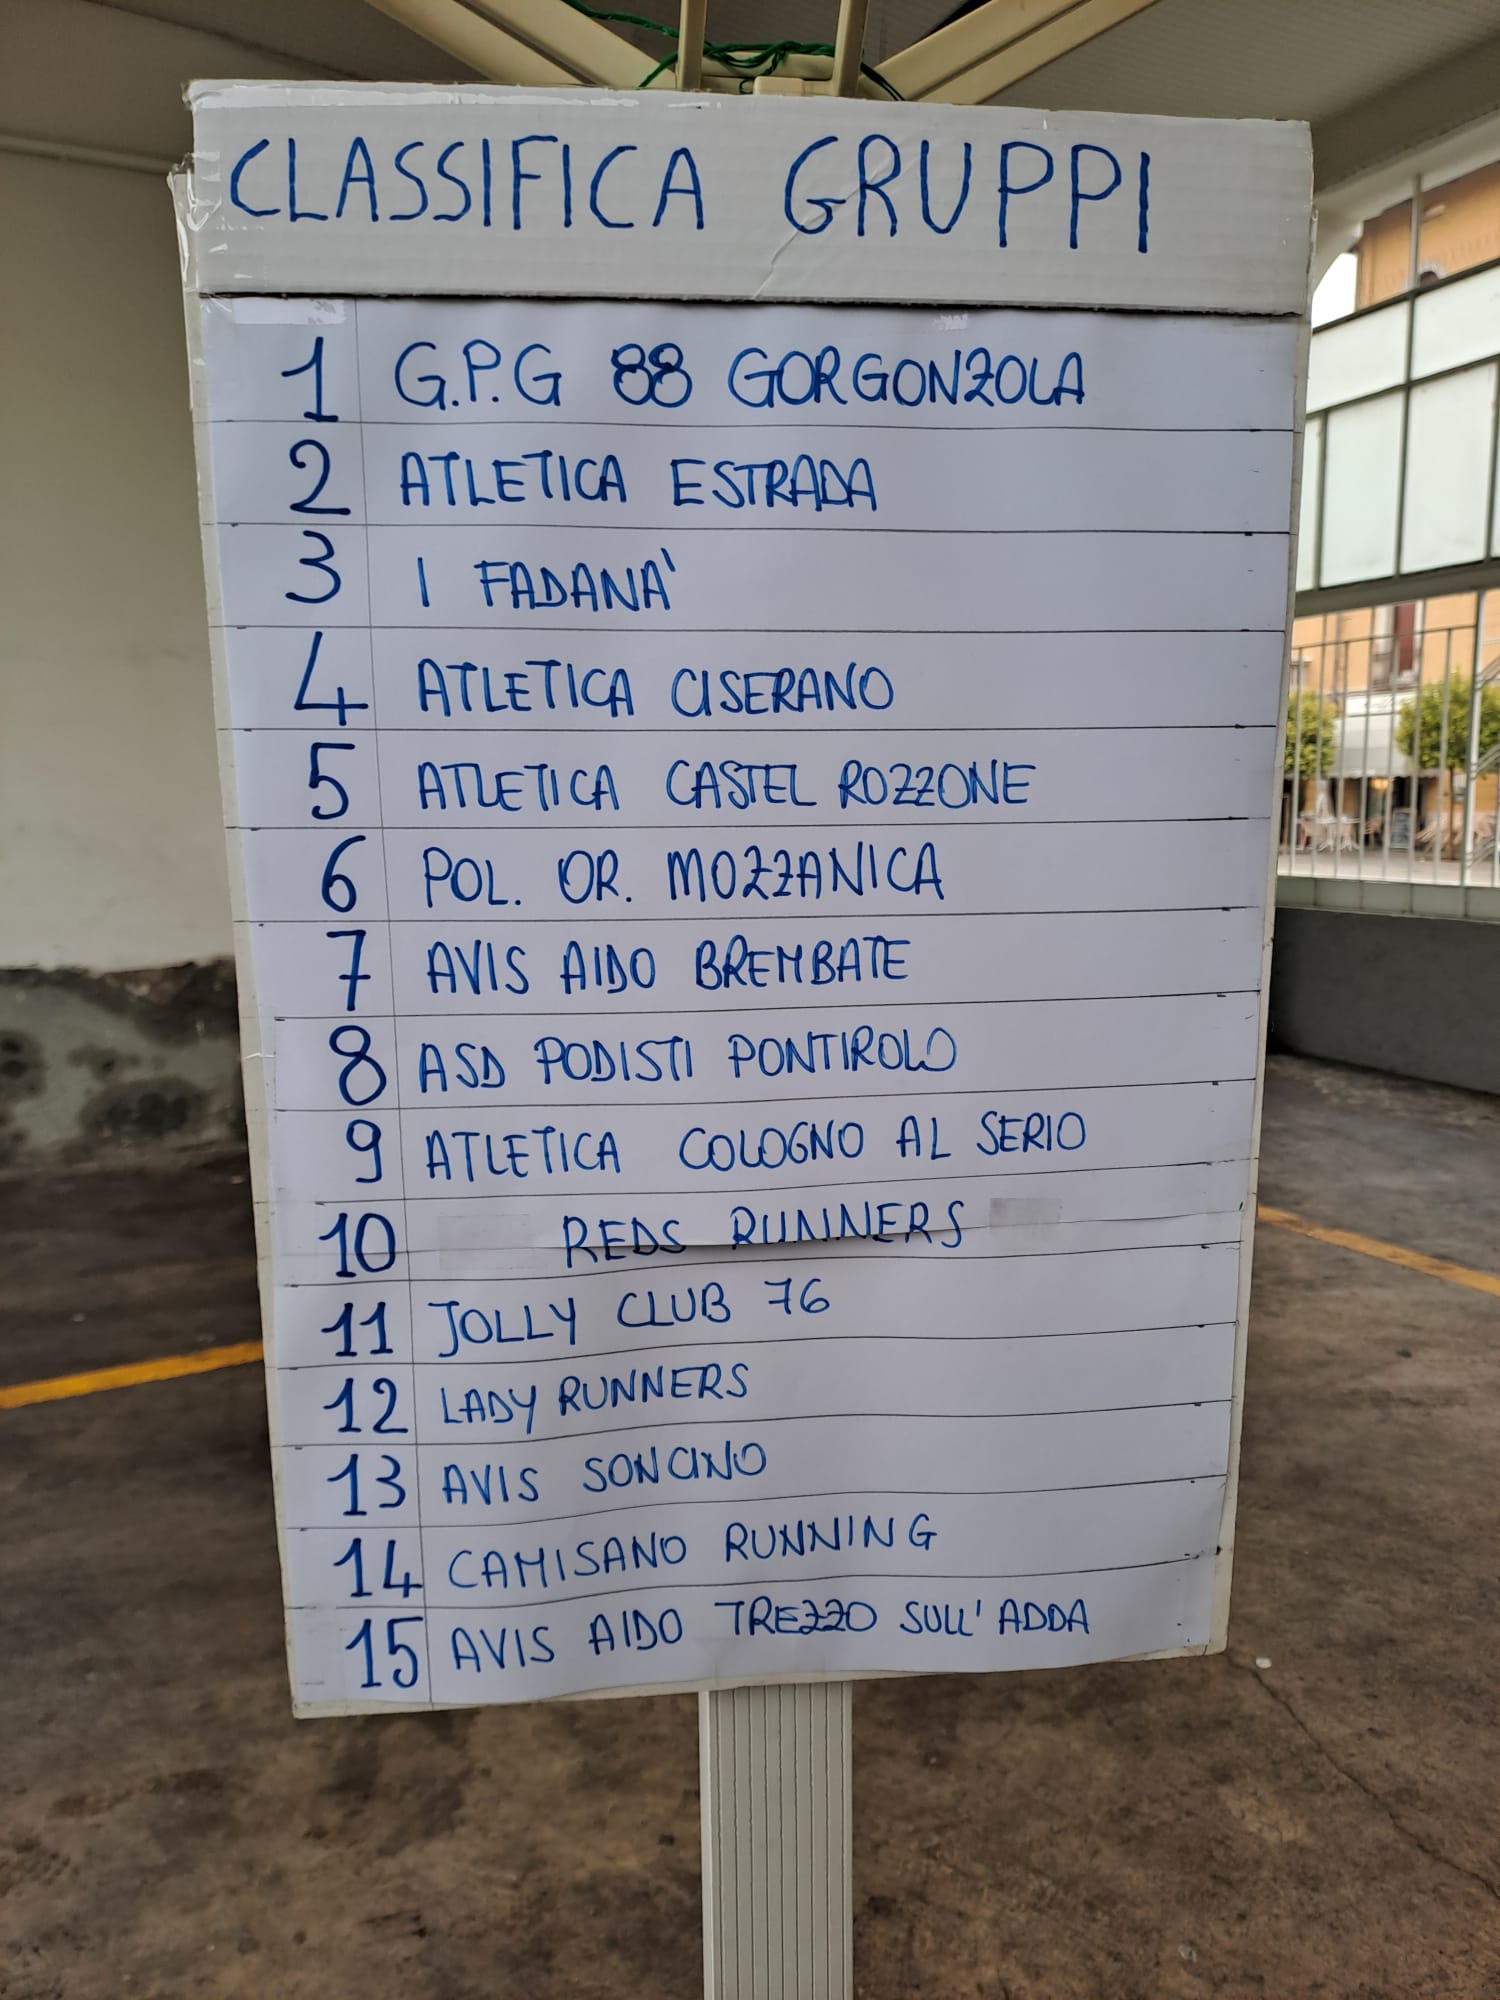 CLASSIFICA GRUPPI
1 G.P.G 88 GORGONZOLA
2 ATLETICA ESTRADA
3 I FADANA'
4 ATLETICA CISERANO
5 ATLETICA CASTEL ROZZONE
6 POL. OR. MOZZANICA
7 AVIS AIDO BREMBATE
8 ASD PODISTI PONTIROLO
9 ATLETICA COLOGNO AL SERIO
10 REDS RUNNERS
11 JOLLY CLUB 76
12 LADY RUNNERS
13 AVIS SONCINO
14 CAMISANO RUNNING
15 AVIS AIDO TREZZO SULL'ADDA